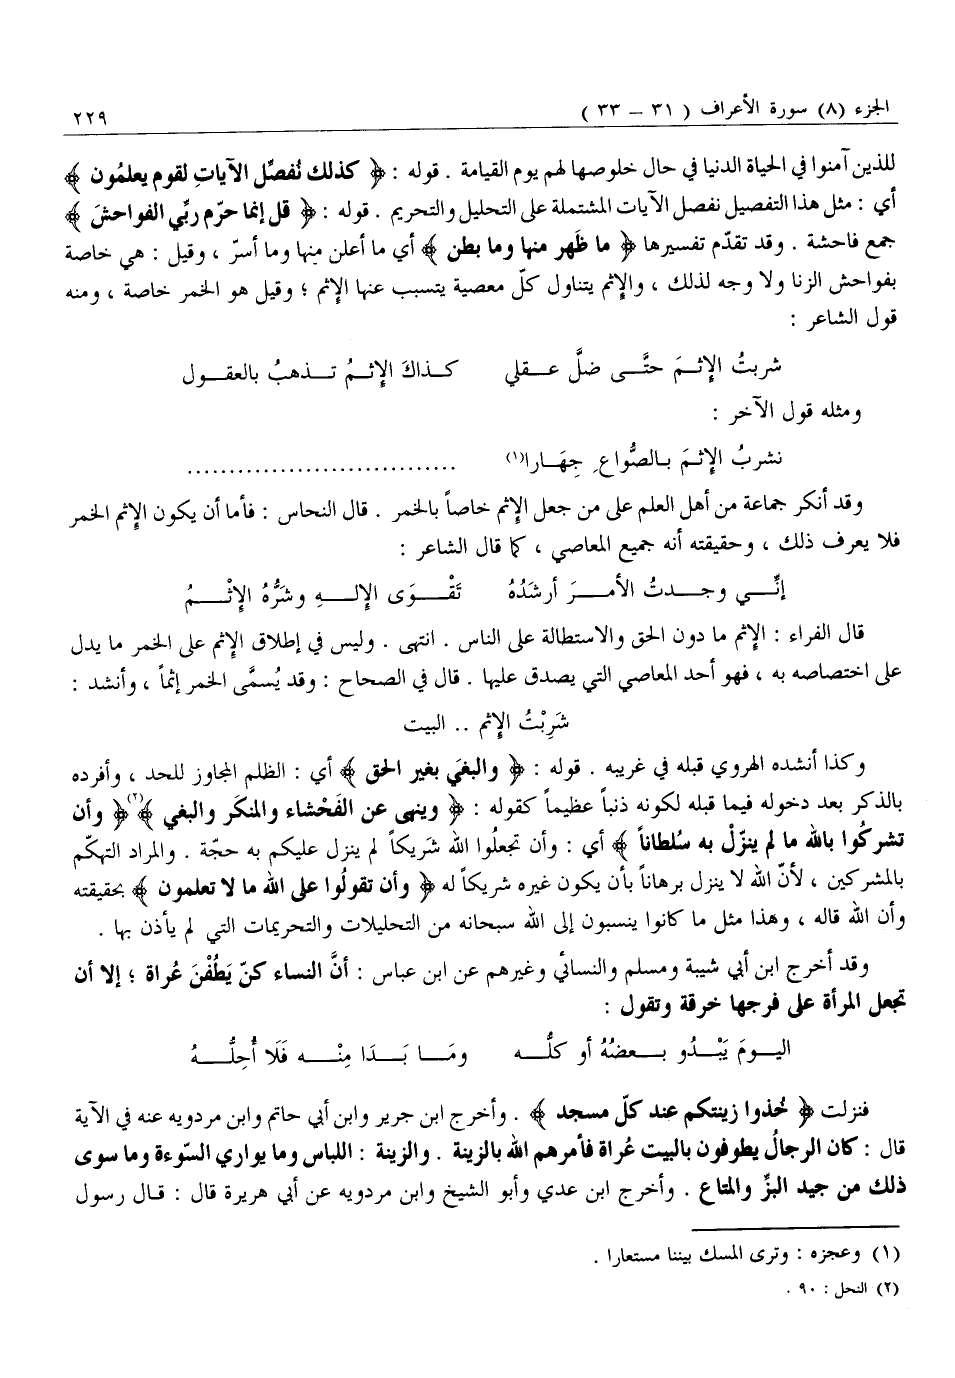 الجزء (٨) سورة الأعراف ( ٣١ – ٣٣ ) ٢٢٩
للذين آمنوا في الحياة الدنيا في حال خلوصها لهم يوم القيامة . قوله : ﴿ كذلك نُفصِّل الآياتِ لقوم يعلمُون ﴾
أي : مثل هذا التفصيل نفصل الآيات المشتملة على التحليل والتحريم . قوله : ﴿ قل إنما حرّم ربِّي الفواحشَ ﴾
جمع فاحشة . وقد تقدّم تفسيرها ﴿ ما ظَهر منها وما بطن ﴾ أي ما أعلن منها وما أسرّ ، وقيل : هي خاصة
بفواحش الزنا ولا وجه لذلك ، والإثم يتناول كلّ معصية يتسبب عنها الإثم ؛ وقيل هو الخمر خاصة ، ومنه
قول الشاعر :
شربتُ الإثـمَ حتَّـى ضلَّ عـقلي كـذاكَ الإثـمُ تـذهبُ بالعقـول
ومثله قول الآخر :
نشربُ الإثـمَ بـالصُّواعِ جِهَـارا(١) ................................
وقد أنكر جماعة من أهل العلم على من جعل الإثم خاصاً بالخمر . قال النحاس : فأما أن يكون الإثم الخمر
فلا يعرف ذلك ، وحقيقته أنه جميع المعاصي ، كما قال الشاعر :
إنِّـي وجـدتُ الأمـرَ أرشَدُهُ تَقْـوَى الإلـهِ وشرُّهُ الإثْـمُ
قال الفراء : الإثم ما دون الحق والاستطالة على الناس . انتهى . وليس في إطلاق الإثم على الخمر ما يدل
على اختصاصه به ، فهو أحد المعاصي التي يصدق عليها . قال في الصحاح : وقد يُسمَّى الخمر إثماً ، وأنشد :
شَرِبْتُ الإثم .. البيت
وكذا أنشده الهروي قبله في غريبه . قوله : ﴿ والبغيَ بغير الحق ﴾ أي : الظلم المجاوز للحد ، وأفرده
بالذكر بعد دخوله فيما قبله لكونه ذنباً عظيماً كقوله : ﴿ وينهى عن الفَحْشاء والمنكَر والبغي ﴾(٢) ﴿ وأن
تشركُوا بالله ما لم ينزّلْ به سُلطاناً ﴾ أي : وأن تجعلُوا لله شَريكاً لم ينزل عليكم به حجّة . والمراد التهكّم
بالمشركين ، لأنّ الله لا ينزل برهاناً بأن يكون غيره شريكاً له ﴿ وأن تقولُوا على الله ما لا تعلمون ﴾ بحقيقته
وأن الله قاله ، وهذا مثل ما كانوا ينسبون إلى الله سبحانه من التحليلات والتحريمات التي لم يأذن بها .
وقد أخرج ابن أبي شيبة ومسلم والنسائي وغيرهم عن ابن عباس : أنَّ النساء كنّ يَطُفْنَ عُراة ؛ إلا أن
تجعل المرأة على فرجها خرقة وتقول :
اليـومَ يَبْـدُو بـعضُهُ أو كلُّـه ومَـا بَـدَا مِنْـه فَلَا أُحِلُّـهُ
فنزلت ﴿ خُذوا زينتكم عند كلّ مسجد ﴾ . وأخرج ابن جرير وابن أبي حاتم وابن مردويه عنه في الآية
قال : كان الرجالُ يطوفون بالبيت عُراة فأمرهم الله بالزينة . والزينة : اللباس وما يواري السّوءة وما سوى
ذلك من جيد البزِّ والمتاع . وأخرج ابن عدي وأبو الشيخ وابن مردويه عن أبي هريرة قال : قـال رسول
(١) وعجزه : وترى المسك بيننا مستعارا .
(٢) النحل : ٩٠ .